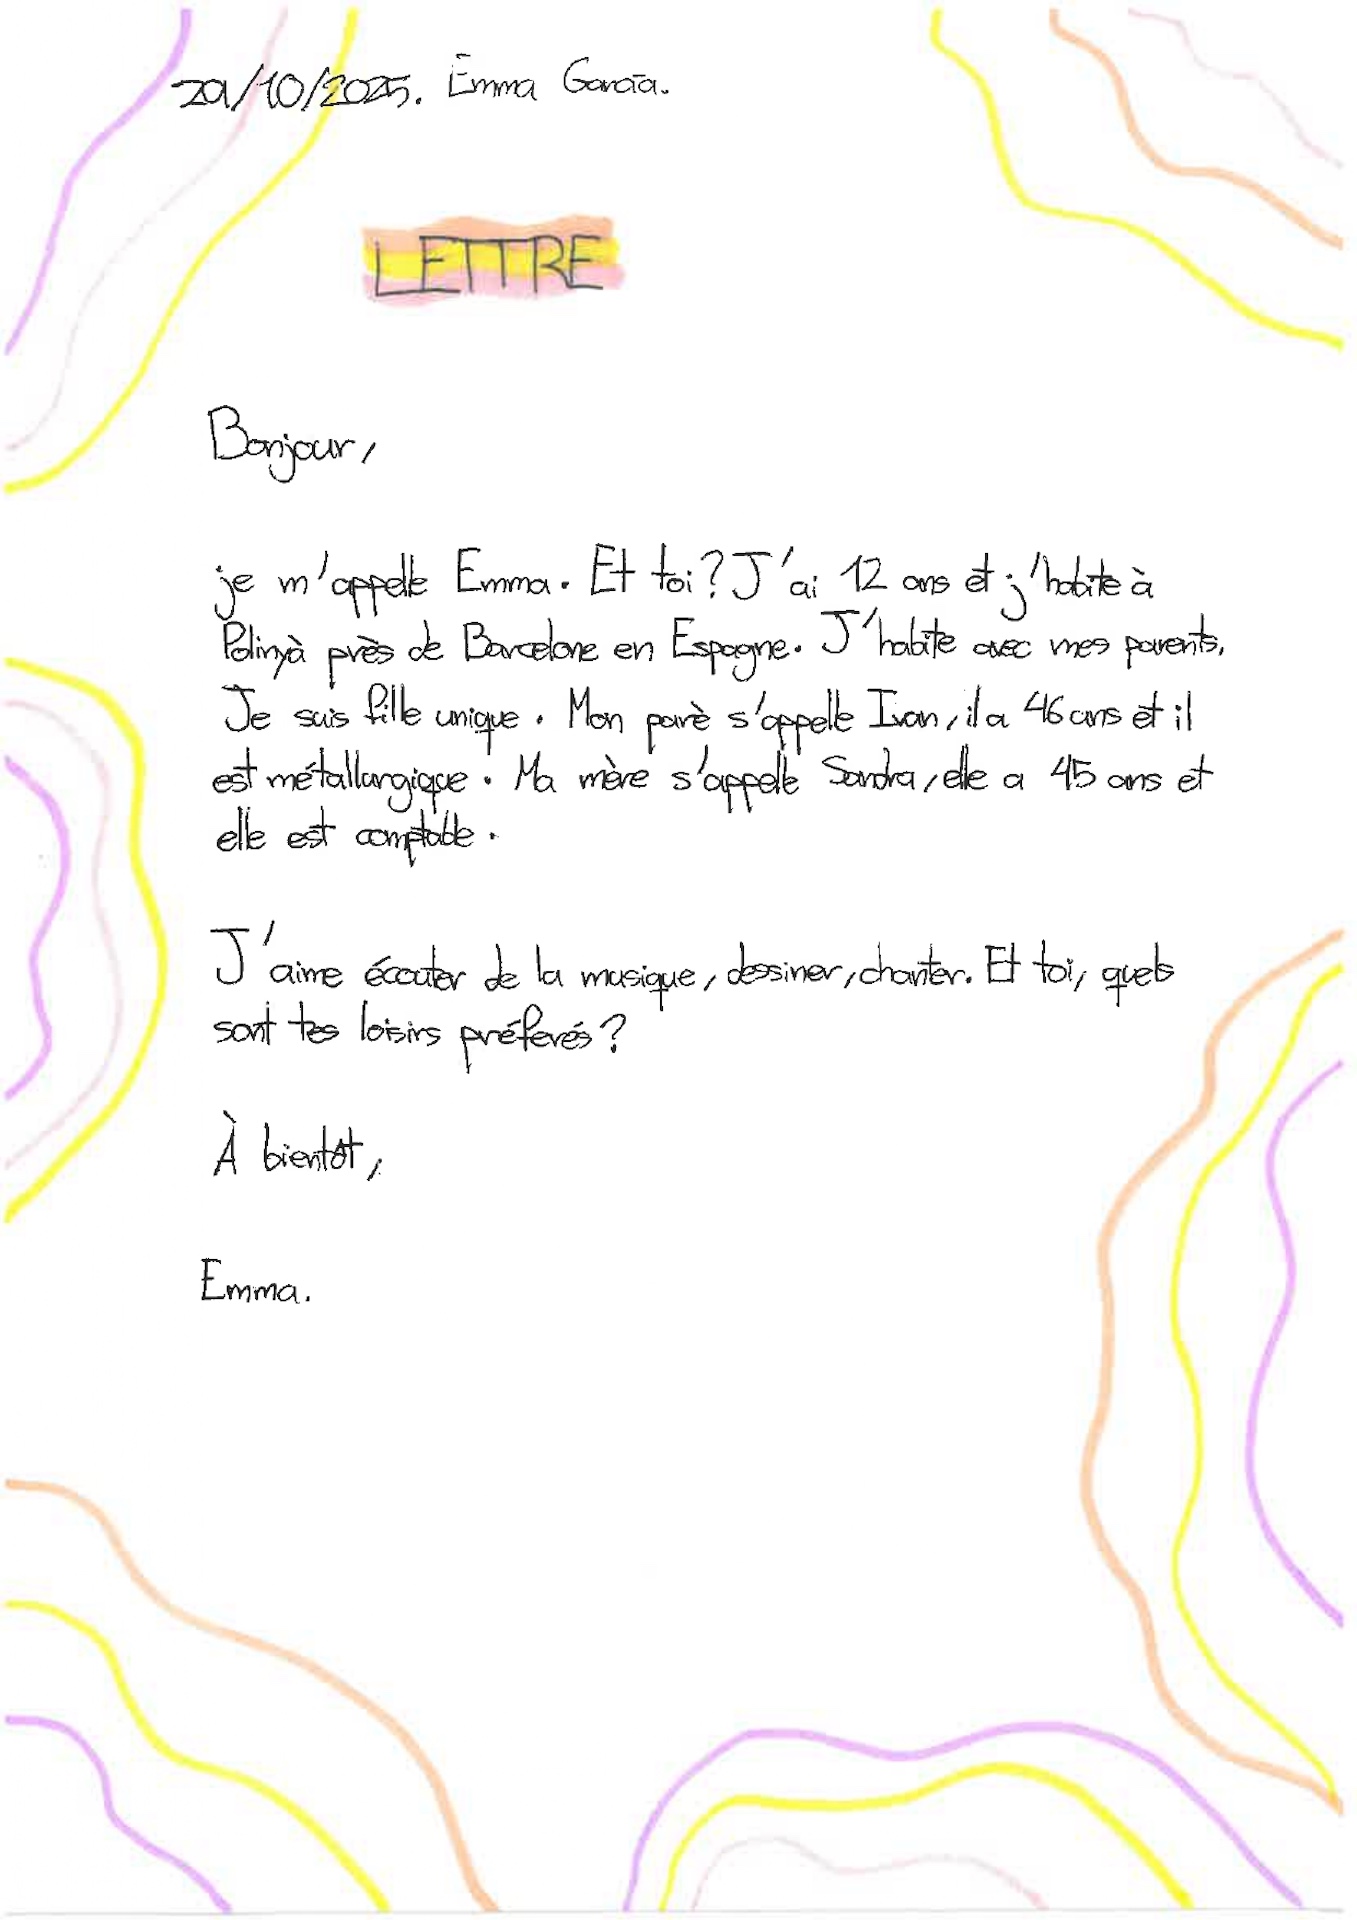 29/10/2025. Emma García.
LETTRE
Bonjour,
je m'appelle Emma. Et toi? J'ai 12 ans et j'habite à
Polinyà près de Barcelone en Espagne. J'habite avec mes parents.
Je suis fille unique. Mon parè s'appelle Ivan, il a 46 ans et il
est métallurgique. Ma mère s'appelle Sandra, elle a 45 ans et
elle est comptable.
J'aime écouter de la musique, dessiner, chanter. Et toi, quels
sont tes loisirs préferés?
À bientôt,
Emma.